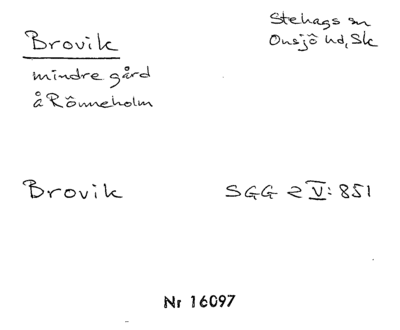 Brovik
mindre gård
å Rönneholm
Stehags sn
Onsjö hd, Sk
Brovik
SGG 2 V:851
Nr 16097